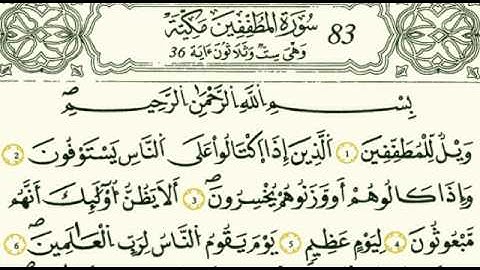 سُورَةُ الْمُطَفِّفِينَ مَكِّيَّةٌ 83
وَهِيَ سِتٌّ وَثَلَاثُونَ ءَايَةً 36
بِسْمِ اللَّهِ الرَّحْمَٰنِ الرَّحِيمِ
وَيْلٌ لِّلْمُطَفِّفِينَ 1 الَّذِينَ إِذَا اكْتَالُوا عَلَى النَّاسِ يَسْتَوْفُونَ 2
وَإِذَا كَالُوهُمْ أَو وَّزَنُوهُمْ يُخْسِرُونَ 3 أَلَا يَظُنُّ أُوْلَٰٓئِكَ أَنَّهُم
مَّبْعُوثُونَ 4 لِيَوْمٍ عَظِيمٍ 5 يَوْمَ يَقُومُ النَّاسُ لِرَبِّ الْعَالَمِينَ 6